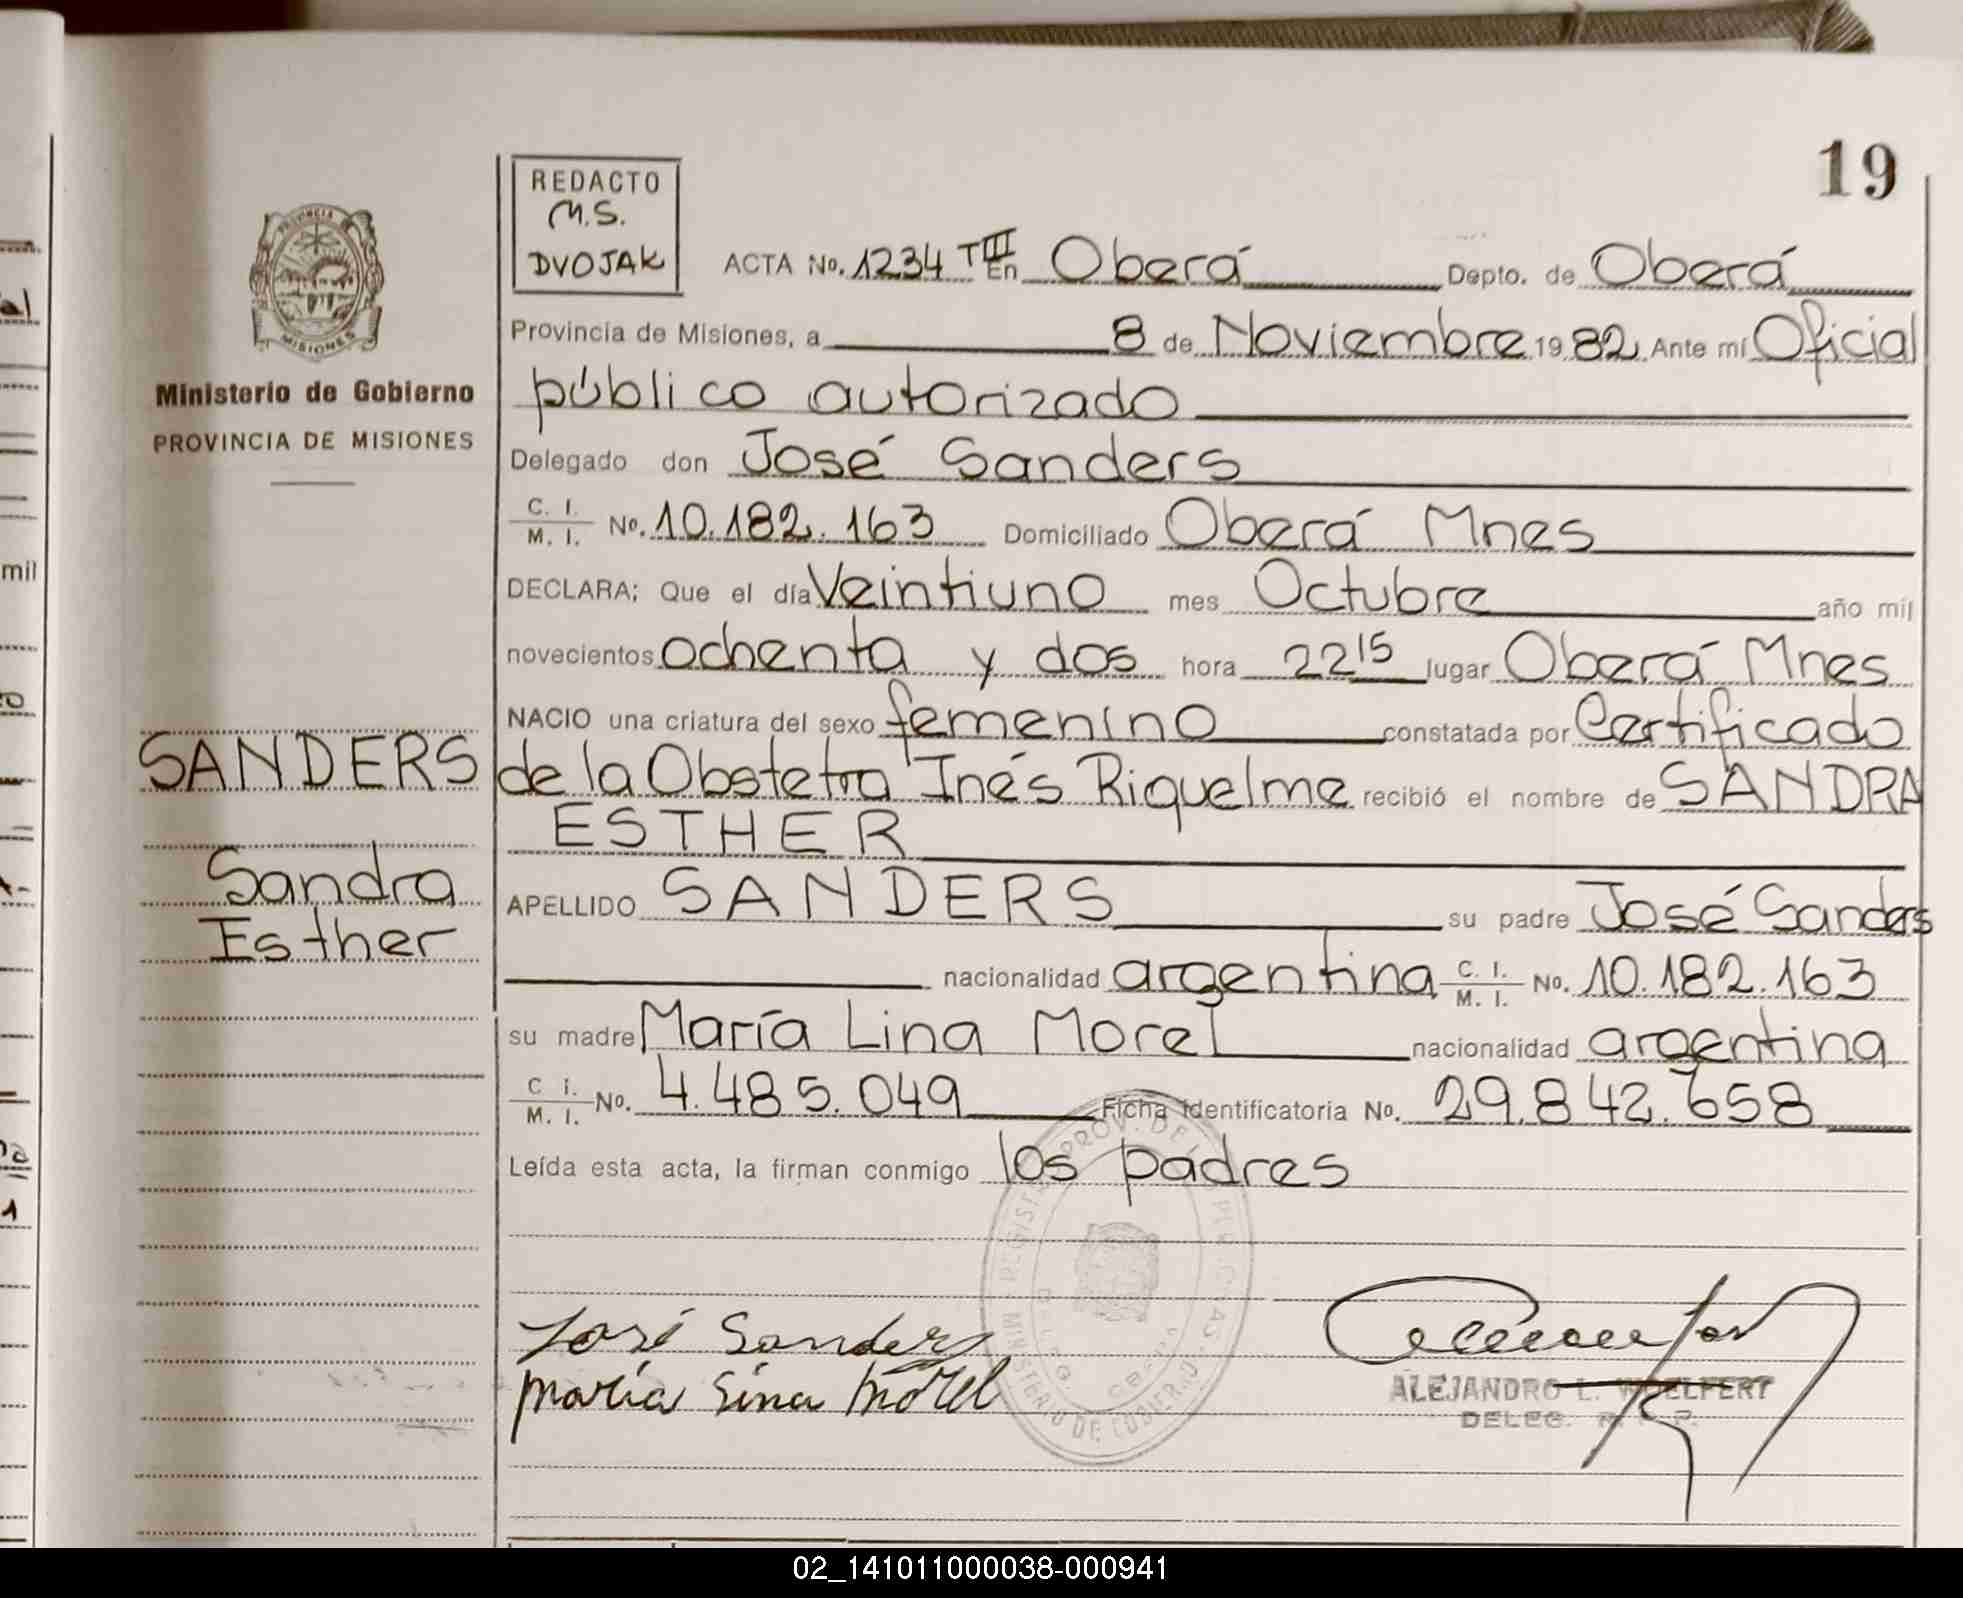 19
REDACTO
M.S.
DVOJAK
PROVINCIA
MISIONES
Ministerio de Gobierno
PROVINCIA DE MISIONES
ACTA No. 1234 TIII En Oberá Depto. de Oberá
Provincia de Misiones, a 8 de Noviembre 1982 Ante mí Oficial
público autorizado
Delegado don José Sanders
C. I. / M. I. No. 10.182.163 Domiciliado Oberá Mnes
DECLARA; Que el día Veintiuno mes Octubre año mil
novecientos ochenta y dos hora 22 15 lugar Oberá Mnes
NACIO una criatura del sexo femenino constatada por Certificado
de la Obstetra Inés Riquelme recibió el nombre de SANDRA
ESTHER
APELLIDO SANDERS su padre José Sanders
nacionalidad argentina C. I. / M. I. No. 10.182.163
su madre María Lina Morel nacionalidad argentina
C I. / M. I. No. 4.485.049 Ficha identificatoria No. 29.842.658
Leída esta acta, la firman conmigo los padres
SANDERS
Sandra
Esther
José Sanders
María Lina Morel
ALEJANDRO L. WOELFERT
DELEG.
MINISTERIO DE GOBIERNO
al
mil
02_141011000038-000941